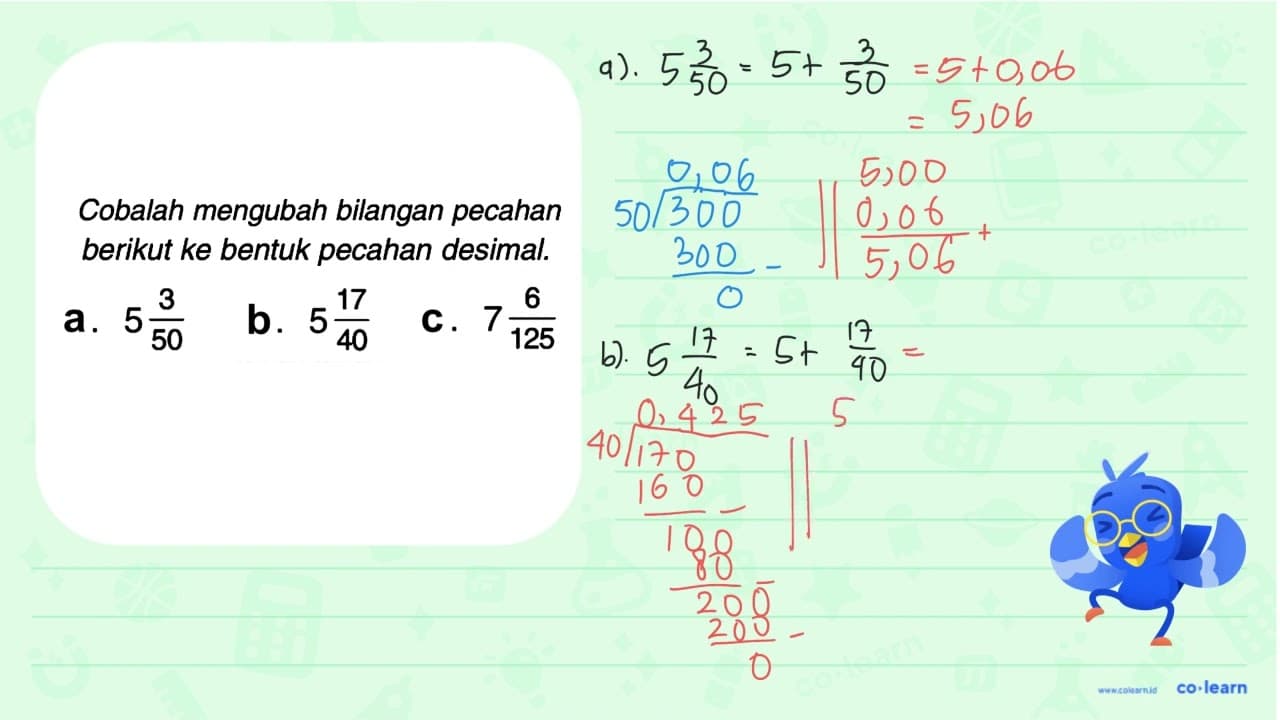 Cobalah mengubah bilangan pecahan
berikut ke bentuk pecahan desimal.
a. 5 3/50 b. 5 17/40 c. 7 6/125
a). 5 3/50 = 5 + 3/50 = 5 + 0,06
= 5,06
0,06
50/300
300 -
0
5,00
0,06 +
5,06
b). 5 17/40 = 5 + 17/40 =
0,425
40/170
160 -
100
80 -
200
200 -
0
5
www.colearn.id co·learn